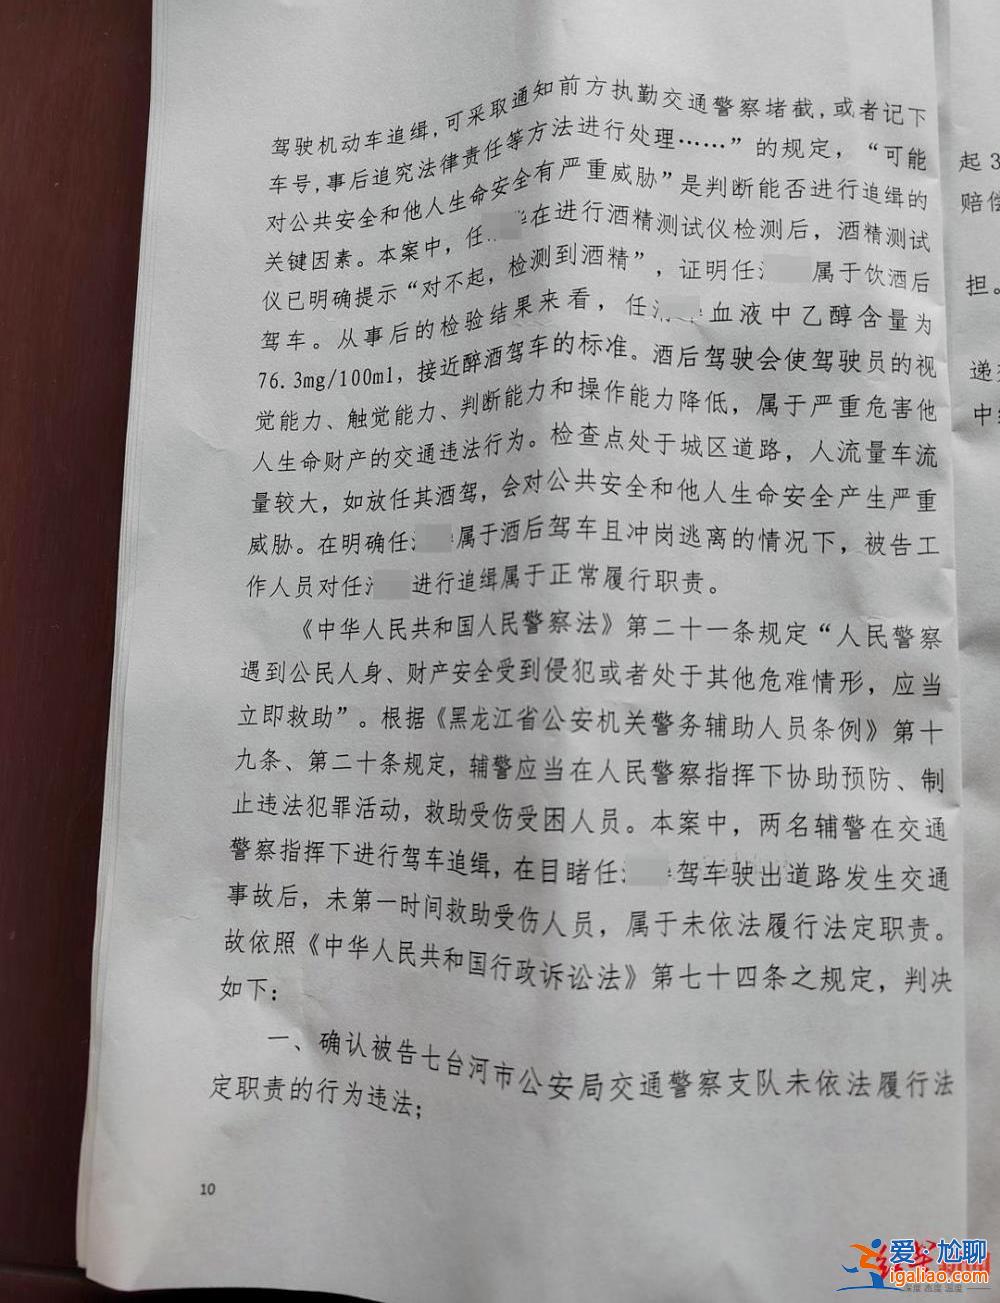 驾驶机动车追缉，可采取通知前方执勤交通警察堵截，或者记下
车号，事后追究法律责任等方法进行处理……”的规定，“可能
对公共安全和他人生命安全有严重威胁”是判断能否进行追缉的
关键因素。本案中，任 在进行酒精测试仪检测后，酒精测试
仪已明确提示“对不起，检测到酒精”，证明任 属于饮酒后
驾车。从事后的检验结果来看，任 血液中乙醇含量为
76.3mg/100ml，接近醉酒驾车的标准。酒后驾驶会使驾驶员的视
觉能力、触觉能力、判断能力和操作能力降低，属于严重危害他
人生命财产的交通违法行为。检查点处于城区道路，人流量车流
量较大，如放任其酒驾，会对公共安全和他人生命安全产生严重
威胁。在明确任 属于酒后驾车且冲岗逃离的情况下，被告工
作人员对任 进行追缉属于正常履行职责。
《中华人民共和国人民警察法》第二十一条规定“人民警察
遇到公民人身、财产安全受到侵犯或者处于其他危难情形，应当
立即救助”。根据《黑龙江省公安机关警务辅助人员条例》第十
九条、第二十条规定，辅警应当在人民警察指挥下协助预防、制
止违法犯罪活动，救助受伤受困人员。本案中，两名辅警在交通
警察指挥下进行驾车追缉，在目睹任 驾车驶出道路发生交通
事故后，未第一时间救助受伤人员，属于未依法履行法定职责。
故依照《中华人民共和国行政诉讼法》第七十四条之规定，判决
如下：
一、确认被告七台河市公安局交通警察支队未依法履行法
定职责的行为违法；
10
起3
赔偿
担。
递
中
爱·尬聊
igaliao.com